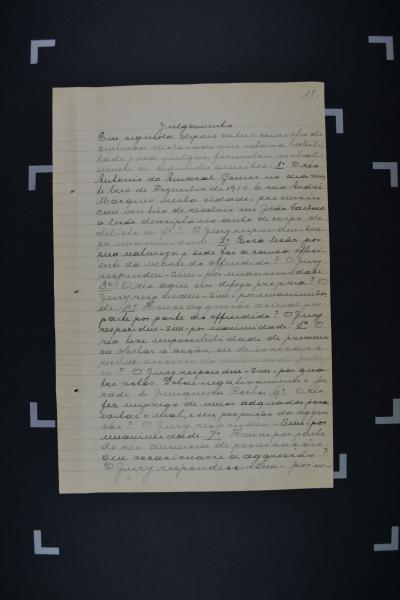 18
Julgamento
Em seguida, depois de ter o conselho de
sentença declarado que estava habili-
tado para julgar, formulou verbal-
mente os seguintes quesitos. 1º O réo
Antonio do Amaral Gomes no dia vin-
te tres de Dezembro de 1910, á rua André
Marques, nesta cidade, produziu
com um tiro de revolver em João
a lesão descripta no auto de corpo de
delicto de f. ? O Jury respondeu - sim -
por unanimidade. 2º Essa lesão por
sua natureza e séde foi a causa effici-
ente da morte do offendido? O Jury
respondeu - sim - por unanimidade.
3º O réo agiu em defeza propria? O
Jury respondeu - sim - por unanimida-
de. 4º Houve aggressão actual por
parte por parte do offendido? O Jury
respondeu - sim - por unanimidade. 5º O
réo teve impossibilidade de prevenir
ou obstar a acção, ou de invocar e
receber soccorro da autoridade publi-
ca? O Jury respondeu - sim - por qua-
tro votos. Votou negativamente o ju-
rado Rocha. 6º O réo
fez emprego de meios adquados para
evitar o mal, e em proporção da aggres-
são? O Jury respondeu - Sim - por
unanimidade. 7º Houve por parte
do réo ausencia de provocação
que occasionasse a aggressão?
O Jury respondeu - Sim - por u-